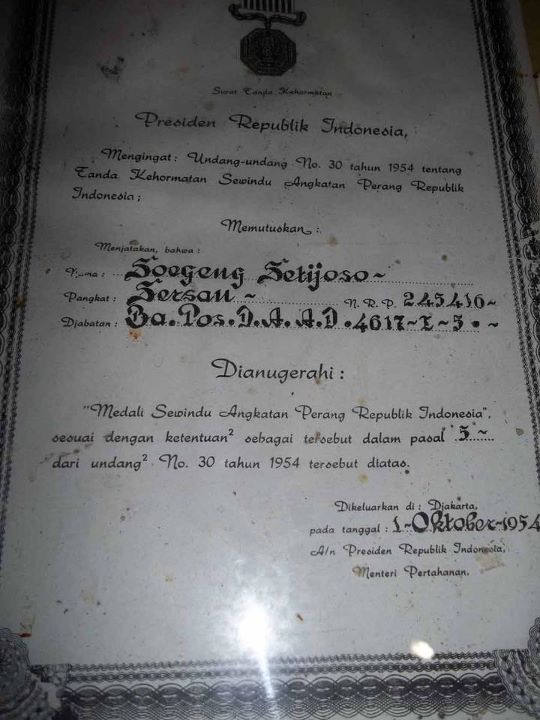 Surat Tanda Kehormatan
Presiden Republik Indonesia,
Mengingat: Undang-undang No. 30 tahun 1954 tentang
Tanda Kehormatan Sewindu Angkatan Perang Republik
Indonesia;
Memutuskan:
Menjatakan, bahwa:
Nama: Soegeng Setijoso~
Pangkat: Sersan ~ N.R.P. 243410~
Djabatan: Ba. Pos. D. A. A. D. 4617~I~3. ~
Dianugerahi:
"Medali Sewindu Angkatan Perang Republik Indonesia",
sesuai dengan ketentuan² sebagai tersebut dalam pasal 3~
dari undang² No. 30 tahun 1954 tersebut diatas.
Dikeluarkan di: Djakarta,
pada tanggal: 1~Oktober~1954
A/n Presiden Republik Indonesia,
Menteri Pertahanan.